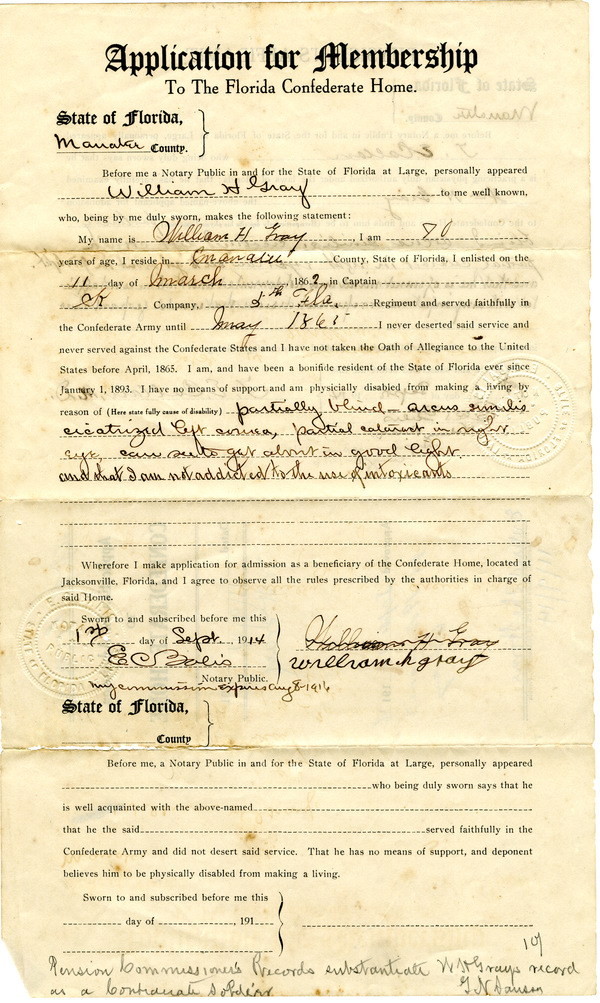 Application for Membership
To The Florida Confederate Home.
State of Florida,
Manatee County.
Before me a Notary Public in and for the State of Florida at Large, personally appeared
William H Gray to me well known,
who, being by me duly sworn, makes the following statement:
My name is William H Gray, I am 70
years of age, I reside in Manatee County, State of Florida, I enlisted on the
11 day of March 1862, in Captain
K Company, Fla. Regiment and served faithfully in
the Confederate Army until May 1865 I never deserted said service and
never served against the Confederate States and I have not taken the Oath of Allegiance to the United
States before April, 1865. I am, and have been a bonifide resident of the State of Florida ever since
January 1, 1893. I have no means of support and am physicially disabled from making a living by
reason of (Here state fully cause of disability) partially blind - arcus sinulis
cicatrized left cornea, partial cataract in right
eye, can see to get about in good light
and that I am not addicted to the use of intoxicants
Wherefore I make application for admission as a beneficiary of the Confederate Home, located at
Jacksonville, Florida, and I agree to observe all the rules prescribed by the authorities in charge of
said Home.
Sworn to and subscribed before me this
1st day of Sept. 1914
William H Gray
E C Bolis
william h gray
Notary Public.
my commission expires aug 8-1916
State of Florida,
County
Before me, a Notary Public in and for the State of Florida at Large, personally appeared
who being duly sworn says that he
is well acquainted with the above-named
that he the said served faithfully in the
Confederate Army and did not desert said service. That he has no means of support, and deponent
believes him to be physically disabled from making a living.
Sworn to and subscribed before me this
day of , 191
Pension Commissioner's Records substantiate W H Grays record
as a Confederate Soldier